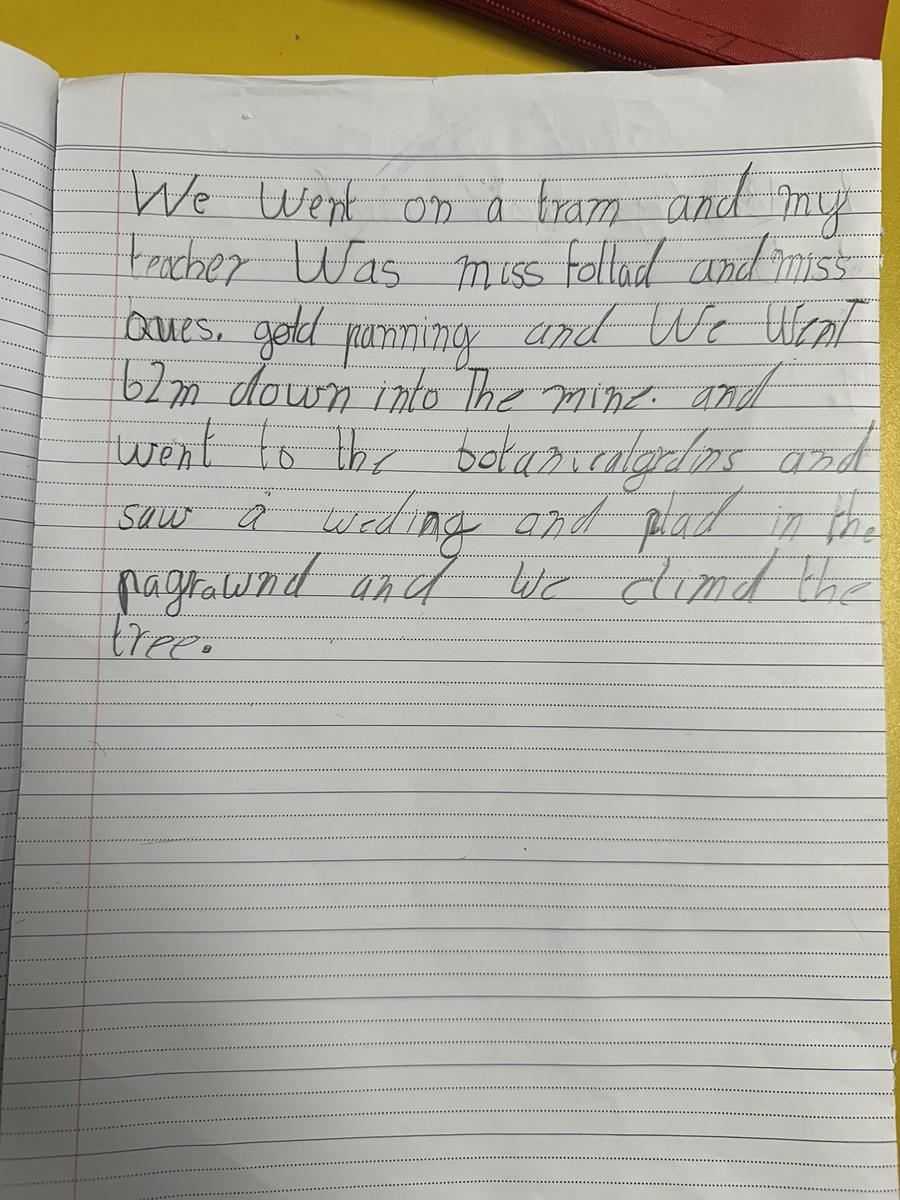 We went on a tram and my
teacher Was miss follad and miss
ques. gold panning and We Went
62m down into The mine. and
went to the botanicalgrdins and
saw a weding and plad in the
pagrawnd and we climd the
tree.